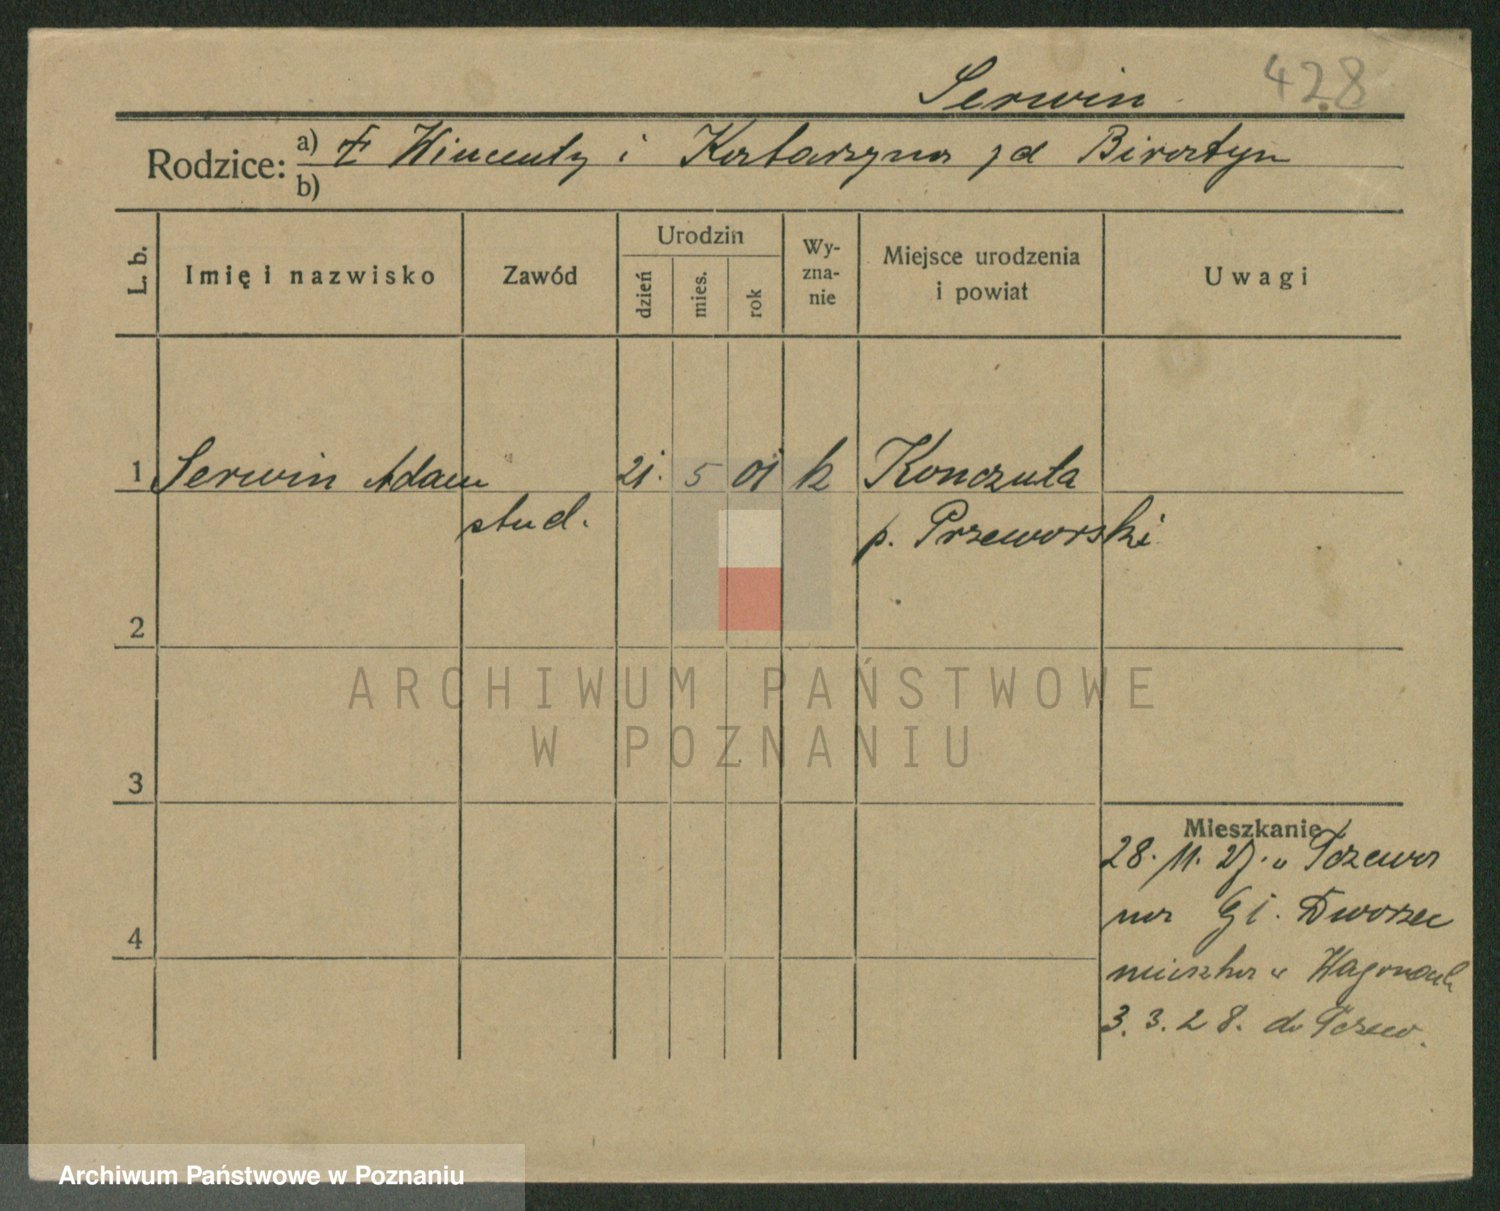 Serwin 428
Rodzice: a) Wincenty i Katarzyna zd Birostyn
b)
L. b. Imię i nazwisko Zawód Urodzin dzień mies. rok Wy-zna-nie Miejsce urodzenia i powiat Uwagi
1 Serwin Adam 21. 5 01 k Konczuta
stud. p. Przeworski
2
ARCHIWUM PAŃSTWOWE
W POZNANIU
3
Mieszkanie
28. 11. 27. z Tczewa
4 na Gł. Dworzec
mieszka w Wagonach
3. 3. 28. do Tczew.
Archiwum Państwowe w Poznaniu